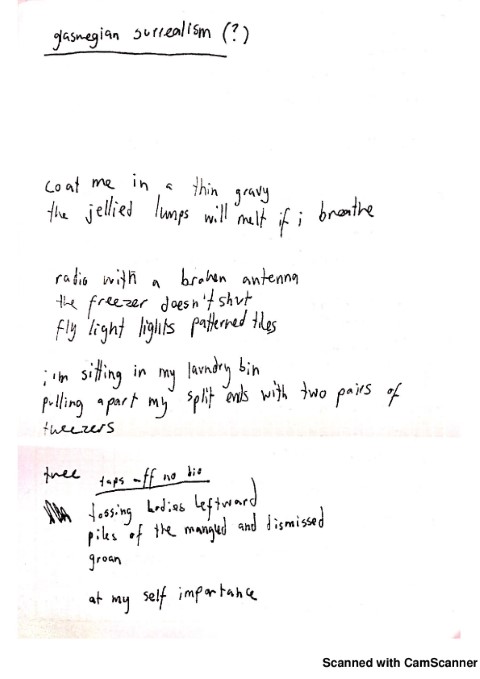 glaswegian surrealism (?)
coat me in a thin gravy
the jellied lumps will melt if i breathe
radio with a broken antenna
the freezer doesn't shut
fly light lights patterned tiles
i'm sitting in my laundry bin
pulling apart my split ends with two pairs of
tweezers
taps aff no bio
tossing bodies leftward
piles of the manged and dismissed
groan
at my self importance
Scanned with CamScanner